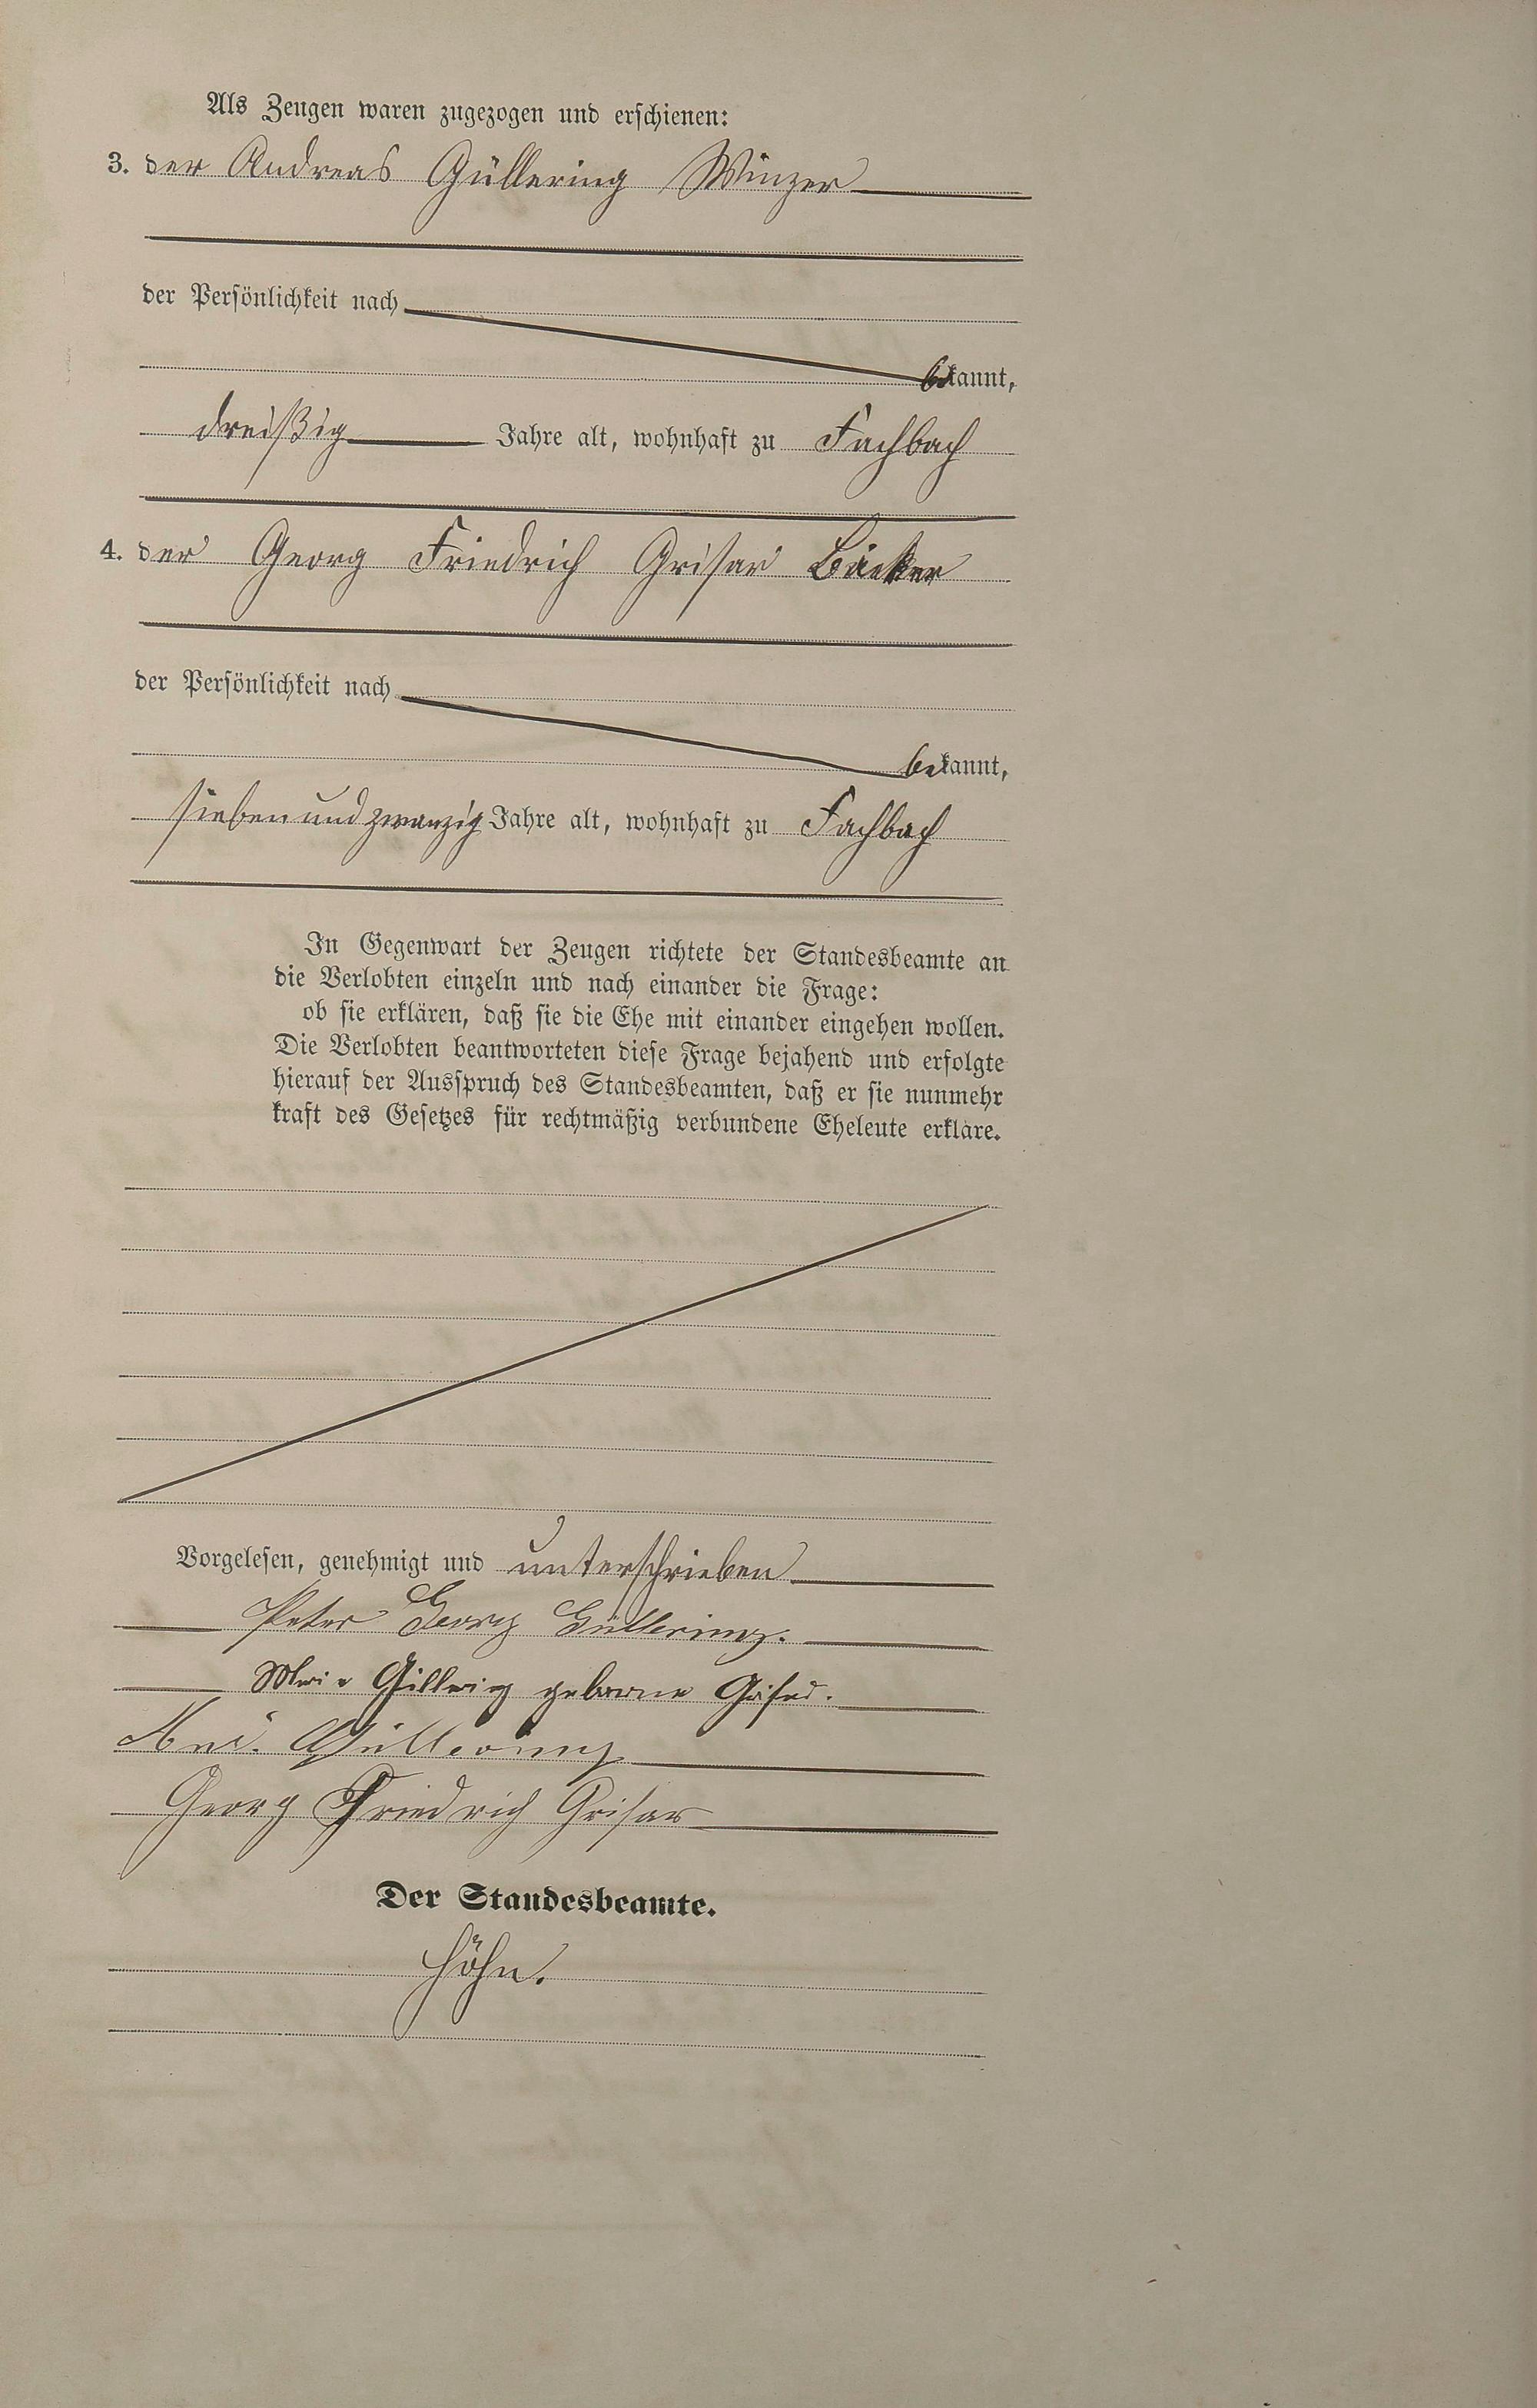 Als Zeugen waren zugezogen und erschienen:
3. der Andreas Güllering Winzer
der Persönlichkeit nach
bekannt,
dreißig Jahre alt, wohnhaft zu Fachbach
4. der Georg Friedrich Grisar Bäcker
der Persönlichkeit nach
bekannt,
siebenundzwanzig Jahre alt, wohnhaft zu Fachbach
In Gegenwart der Zeugen richtete der Standesbeamte an
die Verlobten einzeln und nach einander die Frage:
ob sie erklären, daß sie die Ehe mit einander eingehen wollen.
Die Verlobten beantworteten diese Frage bejahend und erfolgte
hierauf der Ausspruch des Standesbeamten, daß er sie nunmehr
kraft des Gesetzes für rechtmäßig verbundene Eheleute erkläre.
Vorgelesen, genehmigt und unterschrieben
Peter Georg Güllering.
Marie Gillering geborne Grisar.
And. Güllering
Georg Friedrich Grisar
Der Standesbeamte.
Höhn.